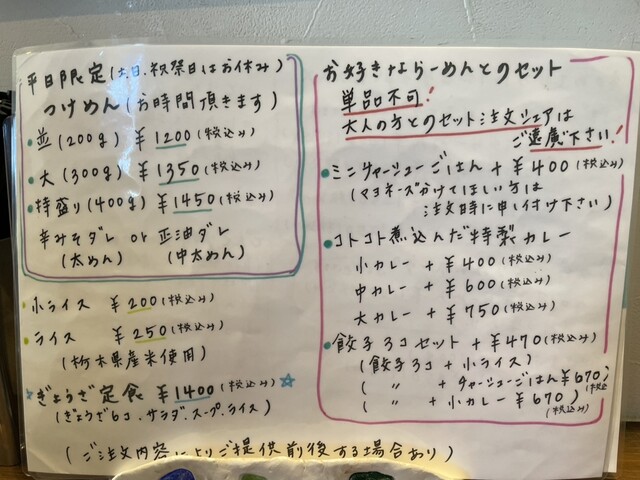 平日限定(土日、祝祭日はお休み)
つけめん(お時間頂きます)
・並(200g) ¥1200(税込み)
・大(300g) ¥1350(税込み)
・特盛り(400g) ¥1450(税込み)
辛みそダレ or 正油ダレ
(太めん) (中太めん)
・小ライス ¥200(税込み)
・ライス ¥250(税込み)
(栃木県産米使用)
☆ぎょうざ定食 ¥1400(税込み)☆
(ぎょうざ6コ、サラダ、スープ、ライス)
お好きならーめんとのセット
単品不可!
大人の方とのセット注文シェアは
ご遠慮下さい!
・ミニチャーシューごはん+¥400(税込み)
(マヨネーズかけてほしい方は
注文時に申し付け下さい)
・コトコト煮込んだ特製カレー
小カレー +¥400(税込み)
中カレー +¥600(税込み)
大カレー +¥750(税込み)
・餃子3コセット+¥470(税込み)
(餃子3コ+小ライス)
( 〃 +チャーシューごはん¥670)
(税込
( 〃 +小カレー¥670)
(税込み)
(ご注文内容によりご提供前後する場合あり)